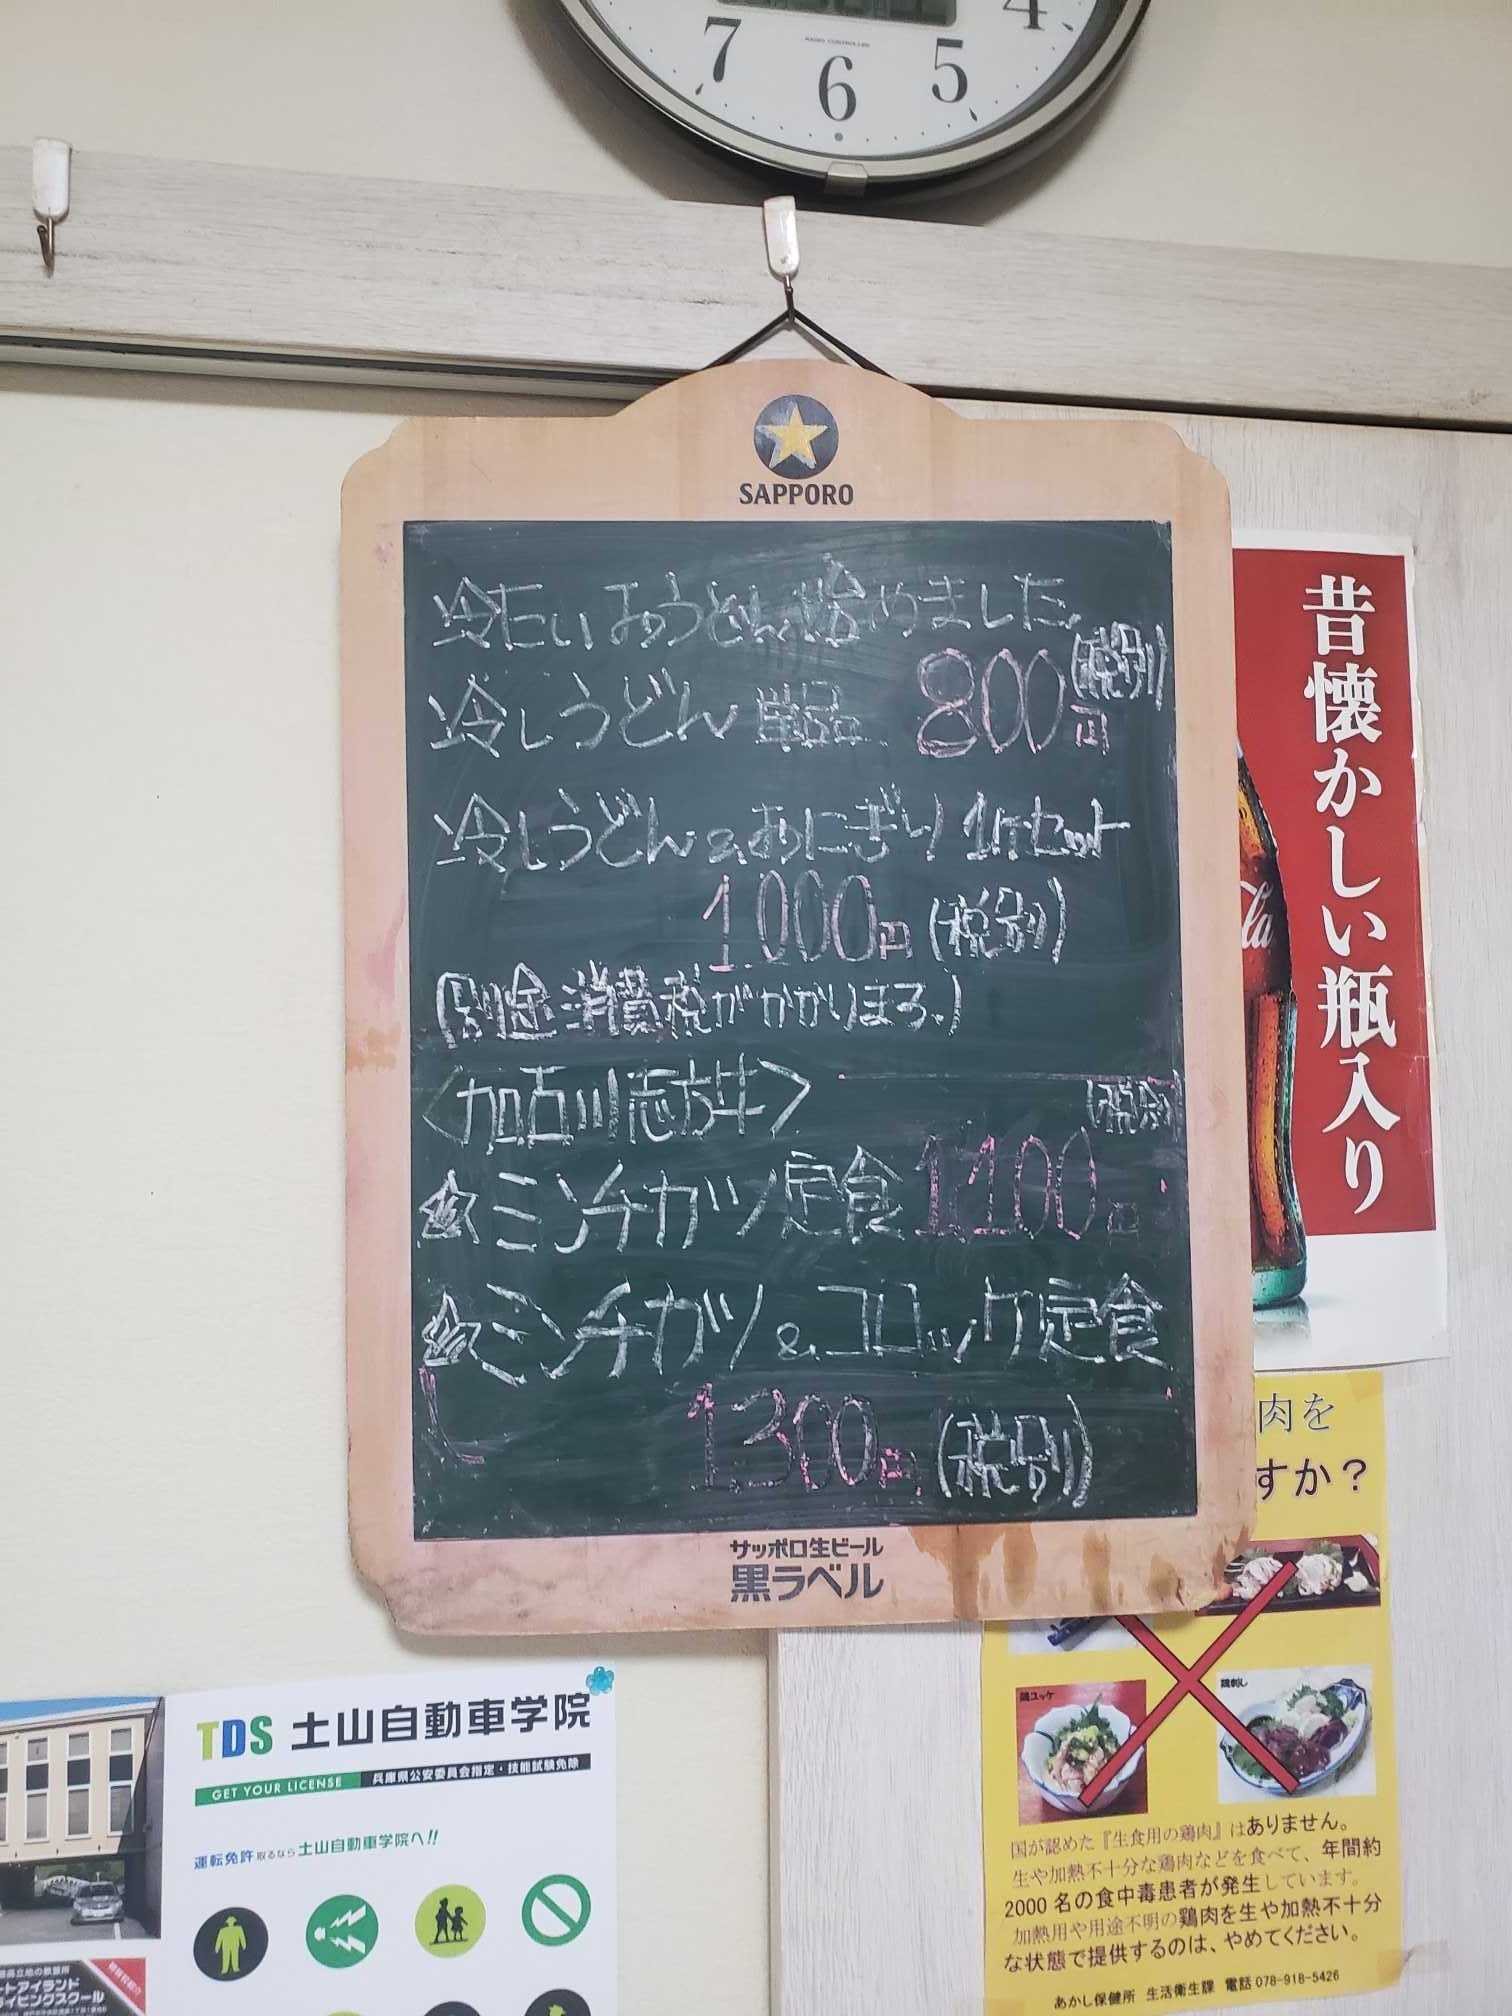 7
6
5
4
RADIO CONTROLLED
SAPPORO
冷たいおうどん始めました。
冷しうどん 単品 800円
(税別)
冷しうどん&おにぎり1ケセット
1000円(税別)
(別途消費税がかかります。)
〈加古川志方牛〉
(税別)
☆ミンチカツ定食 1,100円
☆ミンチカツ&コロッケ定食
1,300円(税別)
サッポロ生ビール
黒ラベル
昔懐かしい瓶入り
la
肉を
すか？
鶏ユッケ
鶏刺し
国が認めた『生食用の鶏肉』はありません。
生や加熱不十分な鶏肉などを食べて、年間約
2000 名の食中毒患者が発生しています。
加熱用や用途不明の鶏肉を生や加熱不十分
な状態で提供するのは、やめてください。
あかし保健所 生活衛生課 電話 078-918-5426
TDS 土山自動車学院
GET YOUR LICENSE 兵庫県公安委員会指定・技能試験免除
運転免許取るなら土山自動車学院へ!!
ートアイランド
イビングスクール